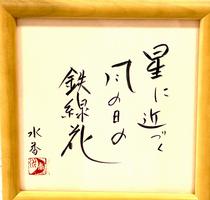 星に近づく
風の日の
鉄線花
水香